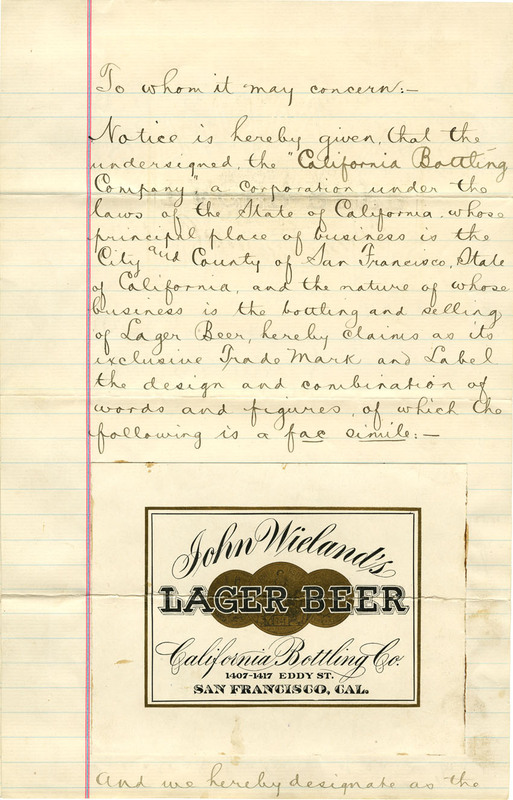 To whom it may concern:—
Notice is hereby given, that the
undersigned, the "California Bottling
Company", a corporation under the
laws of the State of California, whose
principal place of business is the
City and County of San Francisco, State
of California, and the nature of whose
business is the bottling and selling
of Lager Beer, hereby claims as its
exclusive Trade Mark and Label
the design and combination of
words and figures, of which the
following is a fac simile:—
John Wieland's
LAGER BEER
California Bottling Co.
1407-1417 EDDY ST.
SAN FRANCISCO, CAL.
And we hereby designate as the